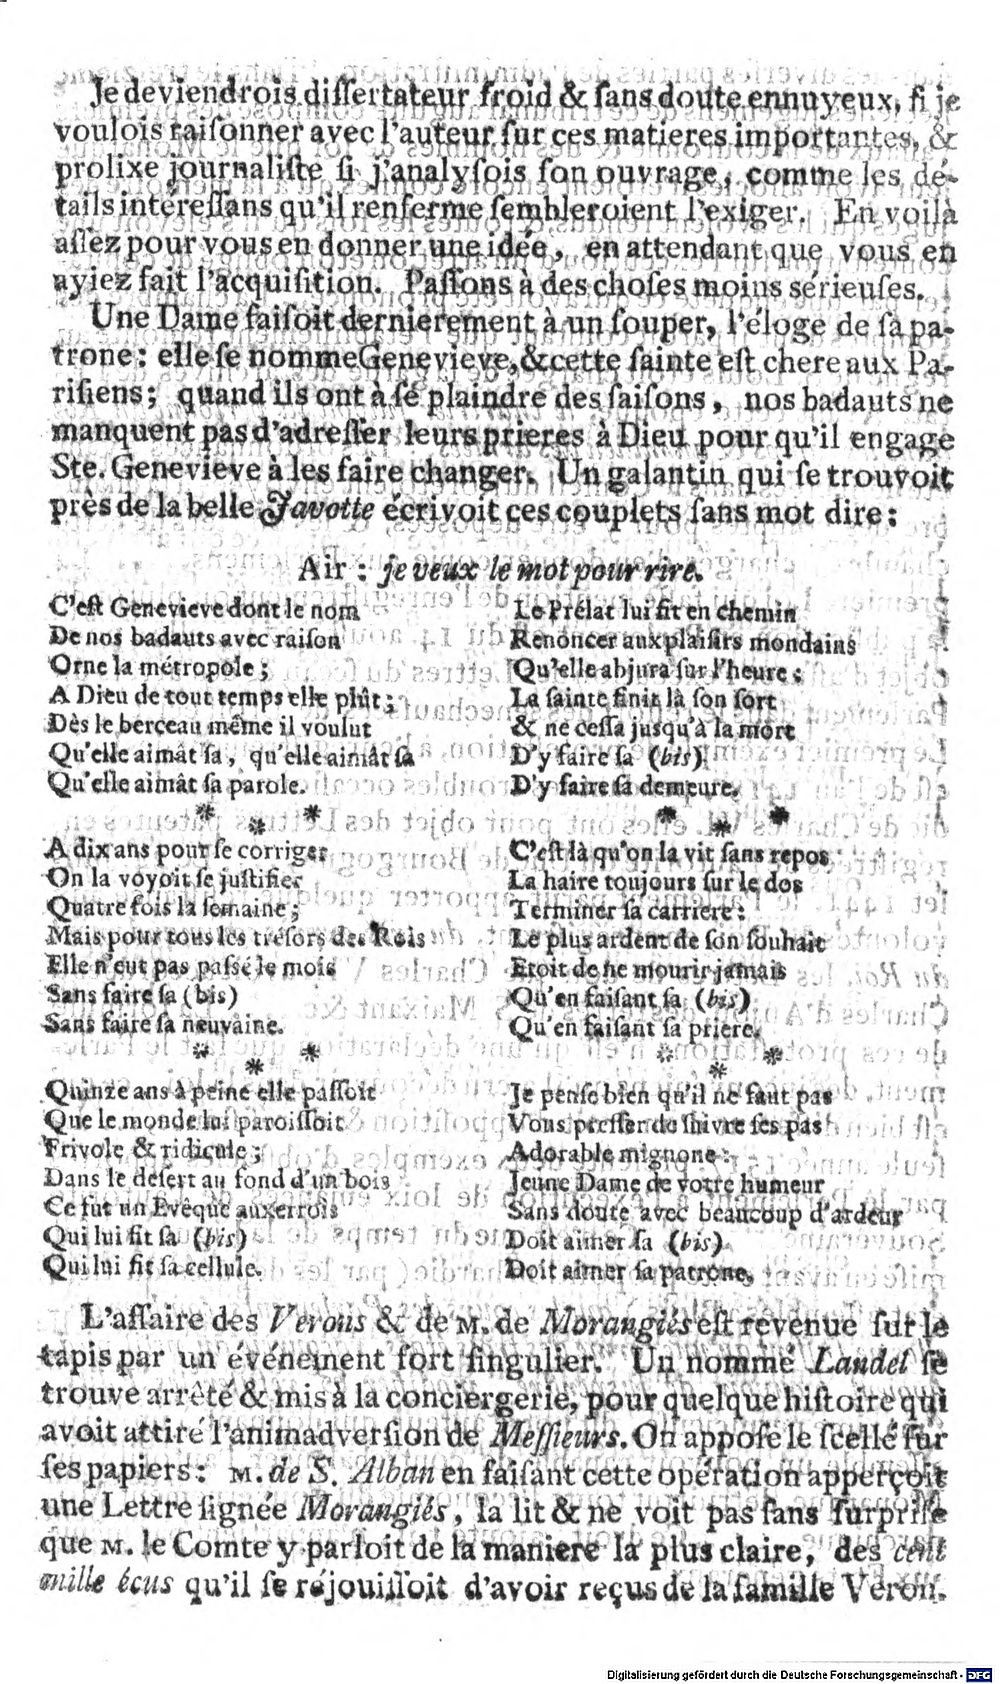 Je deviendrois dissertateur froid & sans doute ennuyeux, si je
voulois raisonner avec l'auteur sur ces matieres importantes, &
prolixe journaliste si j'analysois son ouvrage, comme les dé-
tails intéressans qu'il renferme sembleroient l'exiger. En voilà
assez pour vous en donner une idée, en attendant que vous en
ayiez fait l'acquisition. Passons à des choses moins sérieuses.
Une Dame faisoit dernierement à un souper, l'éloge de sa pa-
trone: elle se nomme Genevieve, & cette sainte est chere aux Pa-
risiens; quand ils ont à se plaindre des saisons, nos badauts ne
manquent pas d'adresser leurs prieres à Dieu pour qu'il engage
Ste. Genevieve à les faire changer. Un galantin qui se trouvoit
près de la belle Javotte écrivoit ces couplets sans mot dire:
Air: je veux le mot pour rire.
C'est Genevieve dont le nom
De nos badauts avec raison
Orne la métropole;
A Dieu de tout temps elle plût;
Dès le berceau même il voulut
Qu'elle aimât sa, qu'elle aimât sa
Qu'elle aimât sa parole.
* * *
A dix ans pour se corriger
On la voyoit se justifier
Quatre fois la semaine;
Mais pour tous les trésors des Rois
Elle n'eut pas passé le mois
Sans faire sa (bis)
Sans faire sa neuvaine.
* * *
Quinze ans à peine elle passoit
Que le monde lui paroissoit
Frivole & ridicule;
Dans le désert au fond d'un bois
Ce fut un Evêque auxerrois
Qui lui fit sa (bis)
Qui lui fit sa cellule.
Le Prélat lui fit en chemin
Renoncer aux plaisirs mondains
Qu'elle abjura sur l'heure:
La sainte finit là son sort
& ne cessa jusqu'à la mort
D'y faire sa (bis)
D'y faire sa demeure.
* * *
C'est là qu'on la vit sans repos
La haire toujours sur le dos
Terminer sa carriere:
Le plus ardent de son souhait
Etoit de ne mourir jamais
Qu'en faisant sa (bis)
Qu'en faisant sa priere.
* * *
Je pense bien qu'il ne faut pas
Vous presser de suivre ses pas
Adorable mignone:
Jeune Dame de votre humeur
Sans doute avec beaucoup d'ardeur
Doit aimer sa (bis)
Doit aimer sa patrone.
L'affaire des Verons & de M. de Morangiés est revenue sur le
tapis par un événement fort singulier. Un nommé Landel se
trouve arrêté & mis à la conciergerie, pour quelque histoire qui
avoit attiré l'animadversion de Messieurs. On appose le scellé sur
ses papiers: M. de S. Alban en faisant cette opération apperçoit
une Lettre signée Morangiés, la lit & ne voit pas sans surprise
que M. le Comte y parloit de la maniere la plus claire, des cent
mille écus qu'il se réjouissoit d'avoir reçus de la famille Veron.
Digitalisierung gefördert durch die Deutsche Forschungsgemeinschaft - DFG